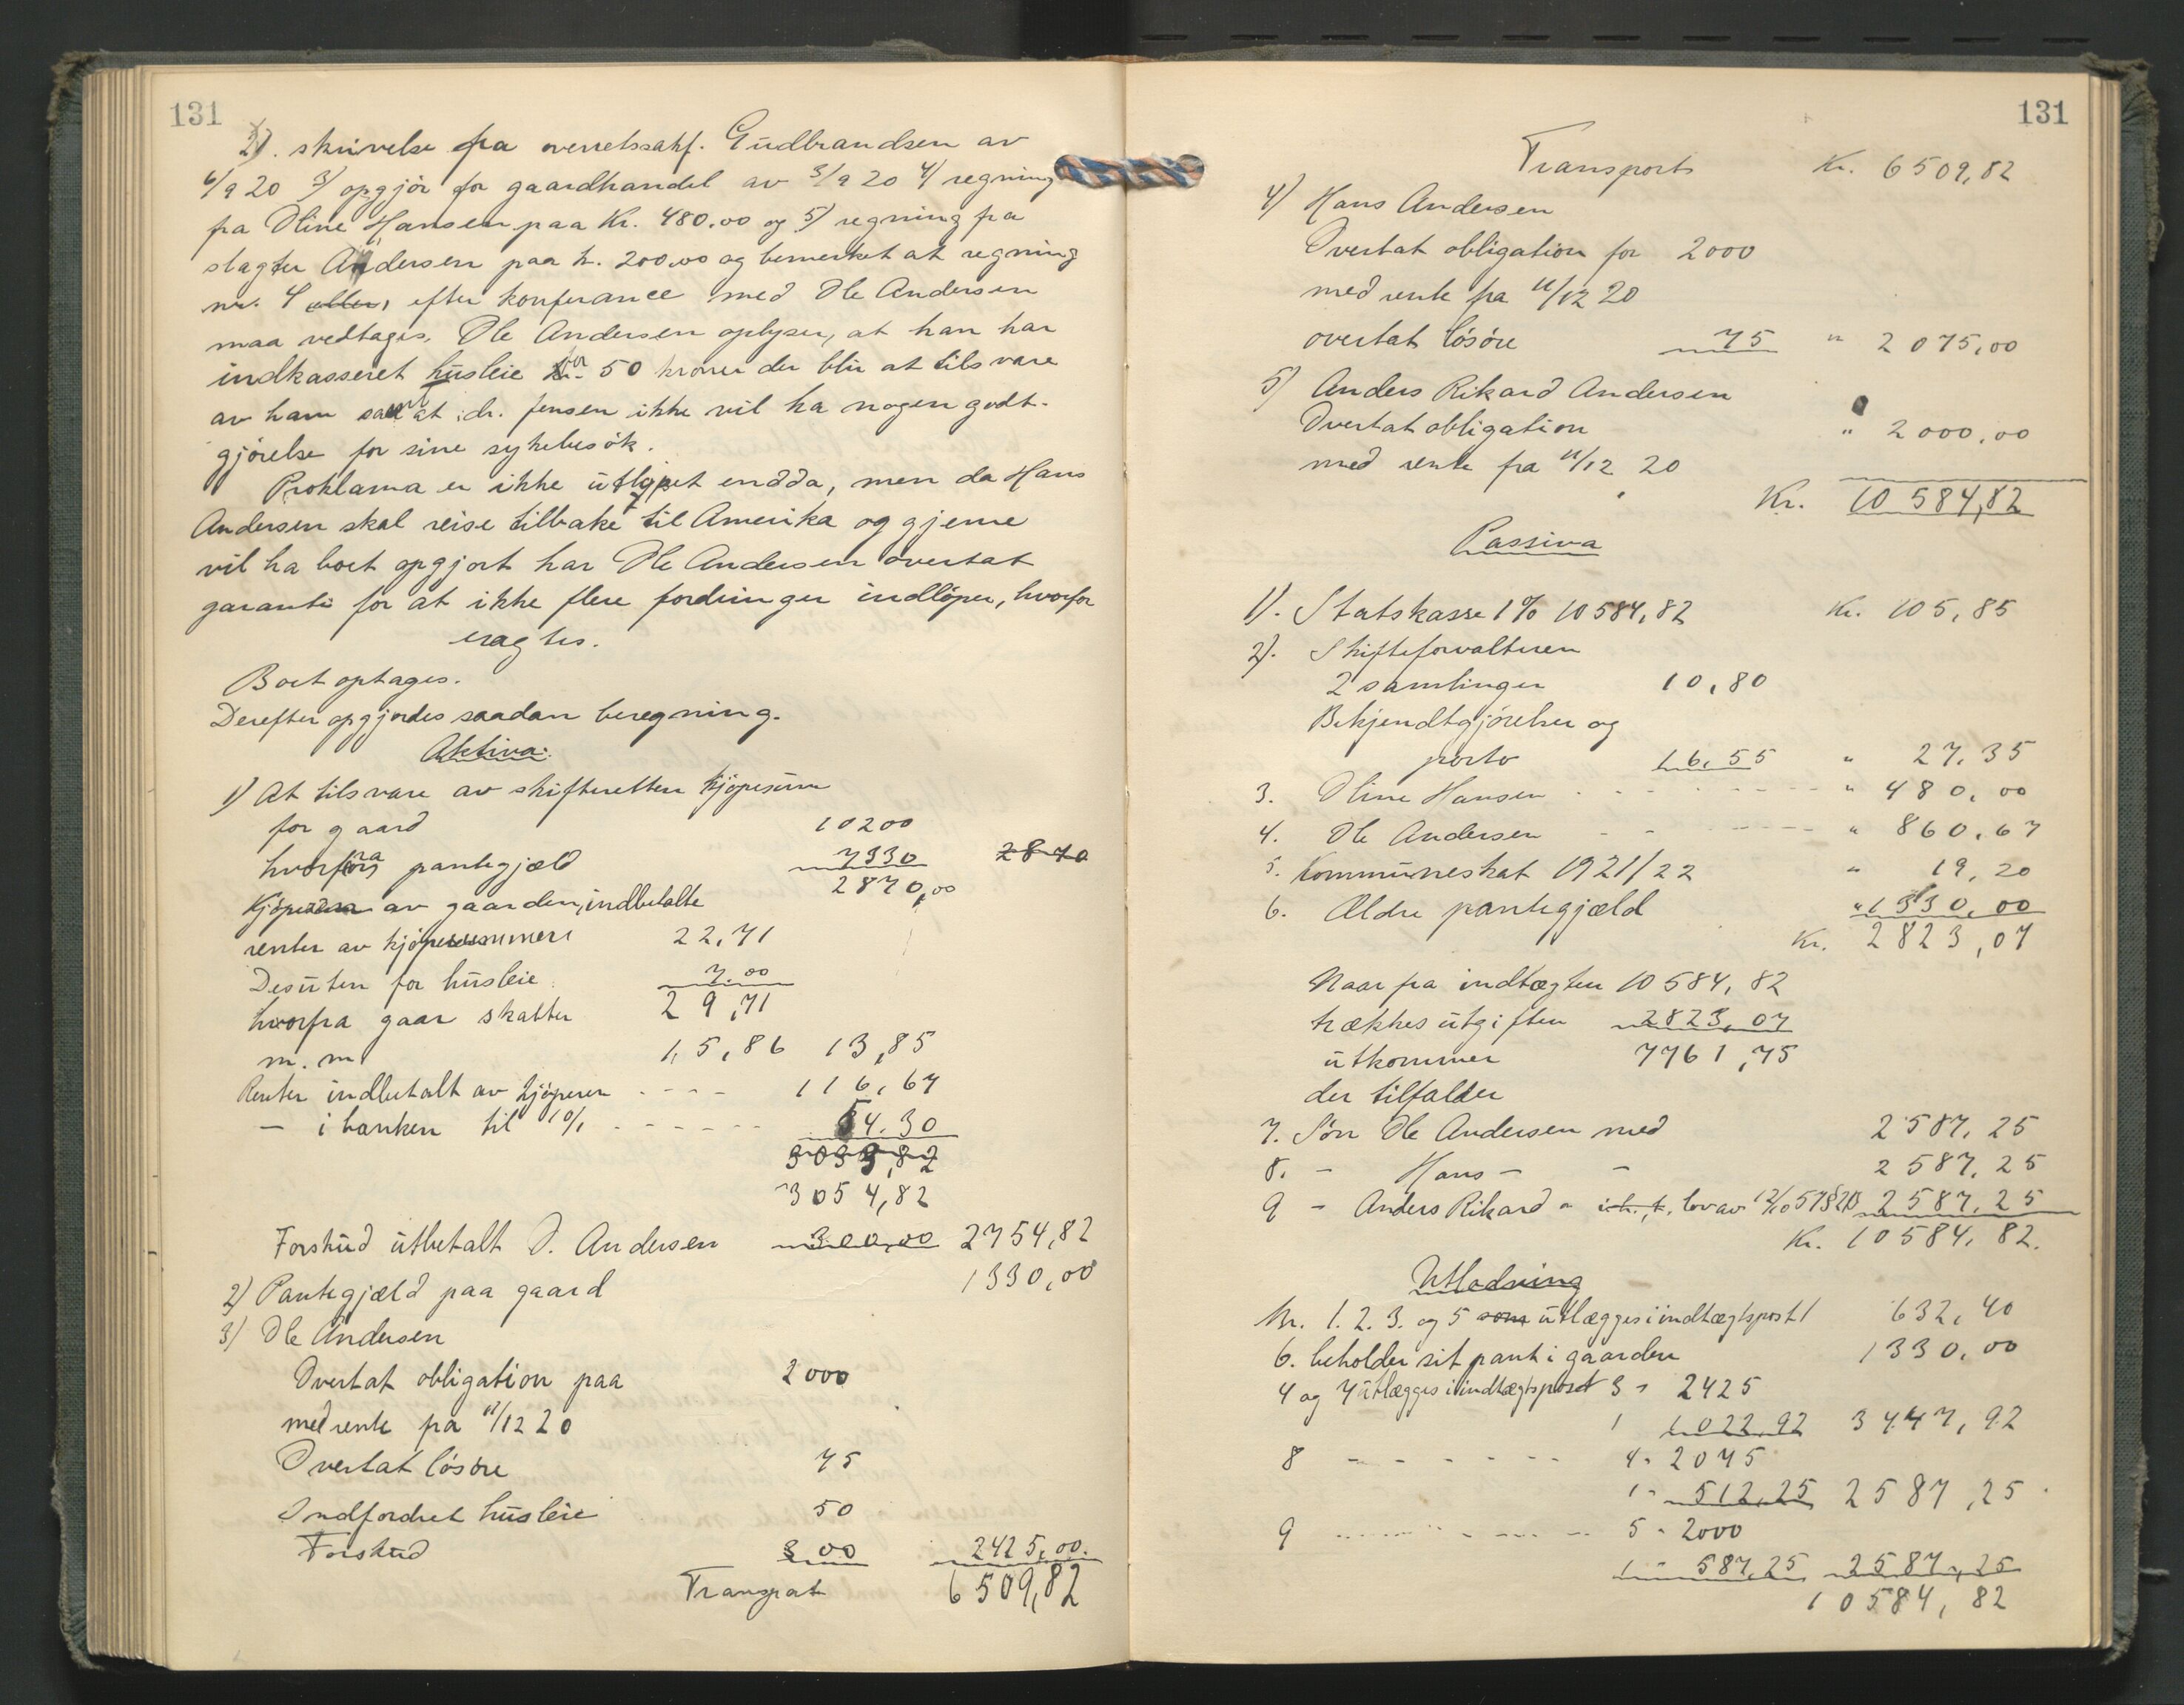 131
2). skrivelse fra overretssakf. Gudbrandsen av
6/9 20 3) opgjör for gaardhandel av 3/9 20 4) regning
fra Oline Hansen paa Kr. 480.00 og 5) regning fra
slagter Andersen paa kr. 200.00 og bemerket at regning
nr. 4 efter konferance med Ole Andersen
maa vedtages. Ole Andersen oplyser, at han har
indkasseret husleie 50 kroner der blir at tilsvare
av ham samt at dr. Jensen ikke vil ha nogen godt-
gjörelse for sine sykebesök.
Proklama er ikke utlöpet endda, men da Hans
Andersen skal reise tilbake til Amerika og gjerne
vil ha boet opgjort har Ole Andersen overtat
garanti for at ikke flere fordringer indlöper, hvorfor
eragtes.
Boet optages.
Derefter opgjordes saadan beregning.
Aktiva:
1) At tilsvare av skifteretten kjöpesum
for gaard 10200
hvorfra pantegjæld 7330 2870
2870,00
Kjöperen av gaarden, indbetalte
renter av kjöpesummen 22,71
Desuten for husleie 7.00
hvorfra gaar skatter 29,71
m. m 15,86 13,85
Renter indbetalt av kjöperen - - - - 116,67
— i banken til 10/1 - - - - - - 54.30
3033,82
3054,82
Forskud utbetalt O. Andersen 300,00 2754,82
2) Pantegjæld paa gaard 1330,00
3) Ole Andersen
Overtat obligation paa 2000
med rente fra 11/12 20
Overtat lösöre 75
Indfordret husleie 50
Forskud 300 2425,00.
Transport 6509,82
131
Transport Kr. 6509,82
4) Hans Andersen
Overtat obligation for 2000
med rente fra 11/12 20
overtat lösöre 75 " 2075,00
5) Anders Rikard Andersen
Overtat obligation " 2000,00
med rente fra 11/12 20
Kr. 10584,82
Passiva
1). Statskasse 1% 10584,82 Kr. 105,85
2). Skifteforvalteren
2 samlinger 10,80
Bekjendtgjörelser og
porto 16,55 " 27,35
3. Oline Hansen - - - - - - " 480,00
4. Ole Andersen - - - - - " 860,67
5. Kommuneskat 1921/22 " 19,20
6. Ældre pantegjæld " 1330,00
Kr. 2823,07
Naar fra indtægten 10584,82
trækkes utgiften 2823,07
utkommer 7761,75
der tilfalder
7. Sön Ole Andersen med 2587,25
8. - Hans — — 2587,25
9 - Anders Rikard - lov av 2587,25
Kr. 10584,82.
Utlodning
Nr. 1. 2. 3. og 5 som utlægges i indtægtspost 1 632,40
6. beholder sit pant i gaarden 1330,00
4 og 7 utlægges i indtægtspost 3 - 2425
1 1022,92 3447,92
8 - - - - - - 4 - 2075
1 - 512,25 2587,25
9 - - - - - - 5 - 2000
1 - 587,25 2587,25
10584,82